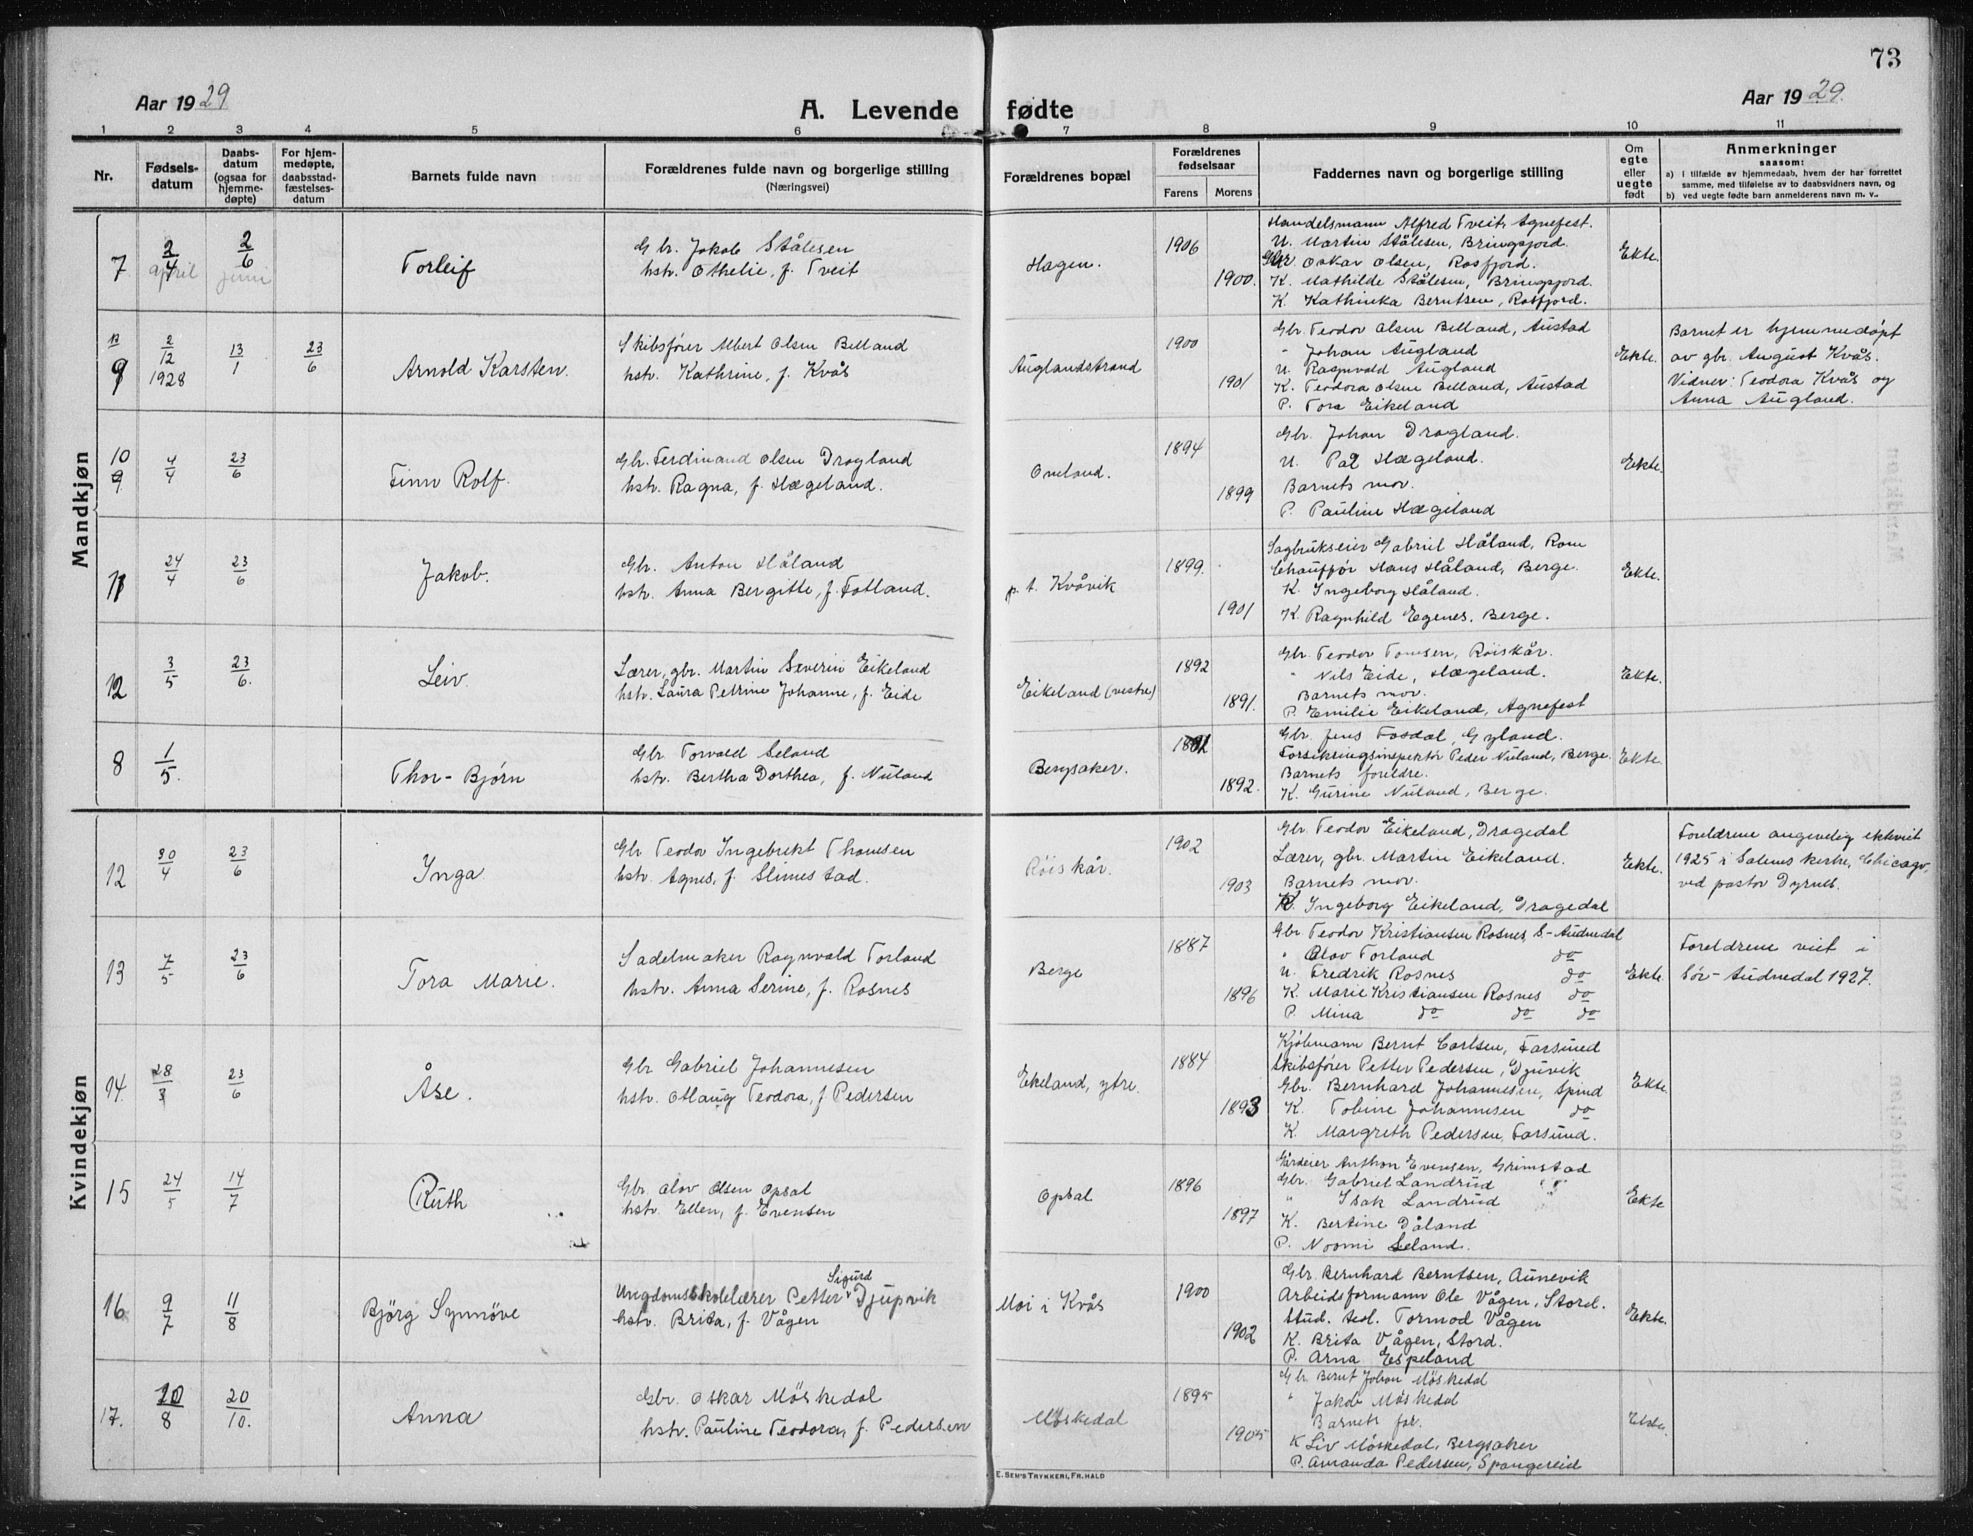 73
Aar 1929
A. Levende fødte
Aar 1929.
1 2 3 4 5 6 7 8 9 10 11
Nr.
Fødsels-
datum
Daabs-
datum
(ogsaa for
hjemme-
døpte)
For hjem-
medøpte,
daabsstad-
fæstelses-
datum
Barnets fulde navn
Forældrenes fulde navn og borgerlige stilling
(Næringsvei)
Forældrenes bopæl
Forældrenes
fødselsaar
Farens Morens
Faddernes navn og borgerlige stilling
Om
egte
eller
uegte
født
Anmerkninger
saasom:
a) i tilfælde av hjemmedaab, hvem der har forrettet
samme, med tilføielse av to daabsvidners navn, og
b) ved uegte fødte barn anmelderens navn m. v.
Mandkjøn
7
2/4
april
2/6
juni
Torleif
Gbr. Jakob Stålesen
hstr. Othelie, f. Tveit
Hagen.
1906
1900.
Handelsmann Alfred Tveit, Agnefest.
U. Martin Stålesen, Bringsjord.
Gbr. Oskar Olsen, Rosfjord.
K. Mathilde Stålesen, Bringsjord.
K. Kathinka Berntsen, Rosfjord.
Ekte.
9
2/12
1928
13/1
23/6
Arnold Karsten.
Skibsfører Albert Olsen Belland
hstr. Kathrine, f. Kvås
Auglandstrand
1900
1901
Gbr. Teodor Olsen Belland, Austad
" Johan Augland
U. Ragnvald Augland
K. Teodora Olsen Belland, Austad
P. Tora Eikeland
Ekte.
Barnet er hjemmedøpt
av gbr. August Kvås.
Vidner: Teodora Kvås og
Anna Augland.
10
9
4/4
23/6
Finn Rolf.
Gbr. Ferdinand Olsen Drogland
hstr. Ragna, f. Hægeland.
Omland.
1894
1899
Gbr. Johan Drogland.
U. Pal Hægeland.
Barnets mor.
P. Pauline Hægeland
Ekte
11
24/4
23/6
Jakob.
Gbr. Anton Håland
hstr. Anna Bergitte, f. Fotland.
p. t. Kvåvik
1899.
1901
Sagbrukseier Gabriel Håland, Rom
Chauffør Hans Håland, Berge.
K. Ingeborg Håland.
K. Ragnhild Egenes. Berge.
Ekte.
12
3/5
23/6.
Leiv.
Lærer, gbr. Martin Severin Eikeland
hstr. Laura Petrine Johanne, f. Eide
Eikeland (vestre)
1892
1891.
Gbr. Teodor Tomsen, Röiskår.
" Nils Eide, Hægeland.
Barnets mor.
P. Emilie Eikeland, Agnefest
Ekte.
8
1/5.
Thor-Bjørn
Gbr. Torvald Seland
hstr. Bertha Dorthea, f. Nuland
Bergsaker.
1892.
Gbr. Jens Fosdal, Gyland.
Forsikringsinspektør Peder Nuland, Berge
Barnets foreldre.
K. Gurine Nuland, Berge.
Ekte.
Kvindekjøn
12
30/4
23/6
Ynga
Gbr Teodor Ingebrekt Thomsen
hstr. Agnes, f. Slimestad.
Röiskår.
1902
1903
Gbr. Teodor Eikeland, Dragedal
Lærer, gbr. Martin Eikeland.
Barnets mor.
K. Ingeborg Eikeland, Dragedal
Ekte.
Foreldrene angivelig ekteviet
1925 i Salems kirke, Chicago,
ved pastor Dyrnes.
13
7/5
23/6
Tora Marie.
Sadelmaker Ragnvald Torland
hstr. Anna Serine, f. Rosnes
Berge
1887
1896
Gbr Teodor Kristiansen Rosnes, S-Audnedal
" Olov Torland do
U. Fredrik Rosnes do
K. Marie Kristiansen Rosnes do
P. Mina do do do
Ekte.
Foreldrene viet i
Sör-Audnedal 1927.
14.
28/3
23/6
Åse.
Gbr Gabriel Johannesen
hstr. Otlaug Teodora, f Pedersen
Ekeland, ytre.
1884
1893
Kjøbmann Bernt Carlsen, Farsund
Skibsfører Petter Pedersen, Djuvik
Gbr. Bernhard Johannesen, Spind
K. Tobine Johannesen do
K. Margreth Pedersen, Farsund.
Ekte.
15
24/5
14/7
Ruth
Gbr. Olov Olsen Opsal
hstr. Ellen, f. Evensen
Opsal
1896
1897
Gårdeier Anthon Evensen, Grimstad
Gbr. Gabriel Landrud "
" Isak Landrud
K. Bertine Dåland
P. Noomi Seland.
Ekte
16
9/7
11/8
Bjørg Synnöve
Sigurd
Ungdomsskolelærer Petter Djupvik
hstr. Brita, f. Vågen
Moi i Kvås
1900
1902
Gbr. Bernhard Berntsen, Aunevik
Arbeidsformann Ole Vågen, Stord.
Stud. teol. Tormod Vågen
K. Brita Vågen, Stord.
P. Arna Espeland
Ekte.
17.
20/8
20/10.
Anna
Gbr. Oskar Möskedal
hstr. Pauline Teodora, f. Pedersen
Möskedal
1895
1905
Gbr. Bernt Johan Möskedal
" Jakob Möskedal
Barnets far.
K Liv Möskedal, Bergsaker
P. Amanda Pedersen, Spangereid
Ekte.
E. SEM'S TRYKKERI, FR.HALD